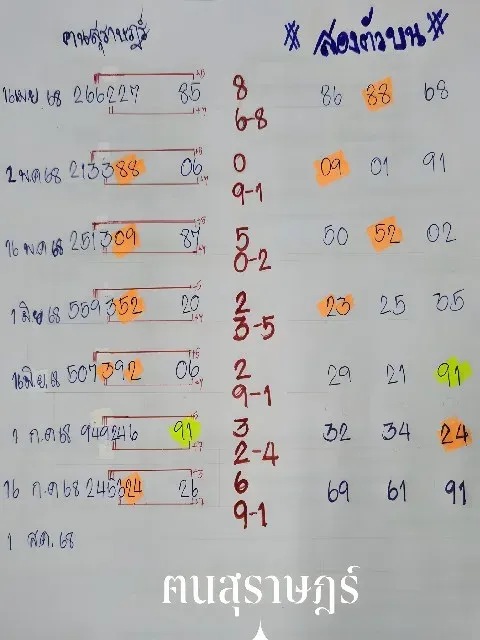 ฅนสุราษฎร์ * สองตัวบน *
16 เมย 68 266227 85 +5 +7 8 86 88 68
6-8
2 พ.ค 68 213388 06 0 09 01 91
9-1
16 พ.ค 68 251309 87 5 50 52 02
0-2
1 มิย 68 559352 20 2 23 25 35
3-5
16 มิ.ย. 68 507392 06 2 29 21 91
9-1
1 ก.ค 68 949246 91 3 32 34 24
2-4
16 ก.ค 68 245324 26 6 69 61 91
9-1
1 ส.ค. 68
ฅนสุราษฎร์